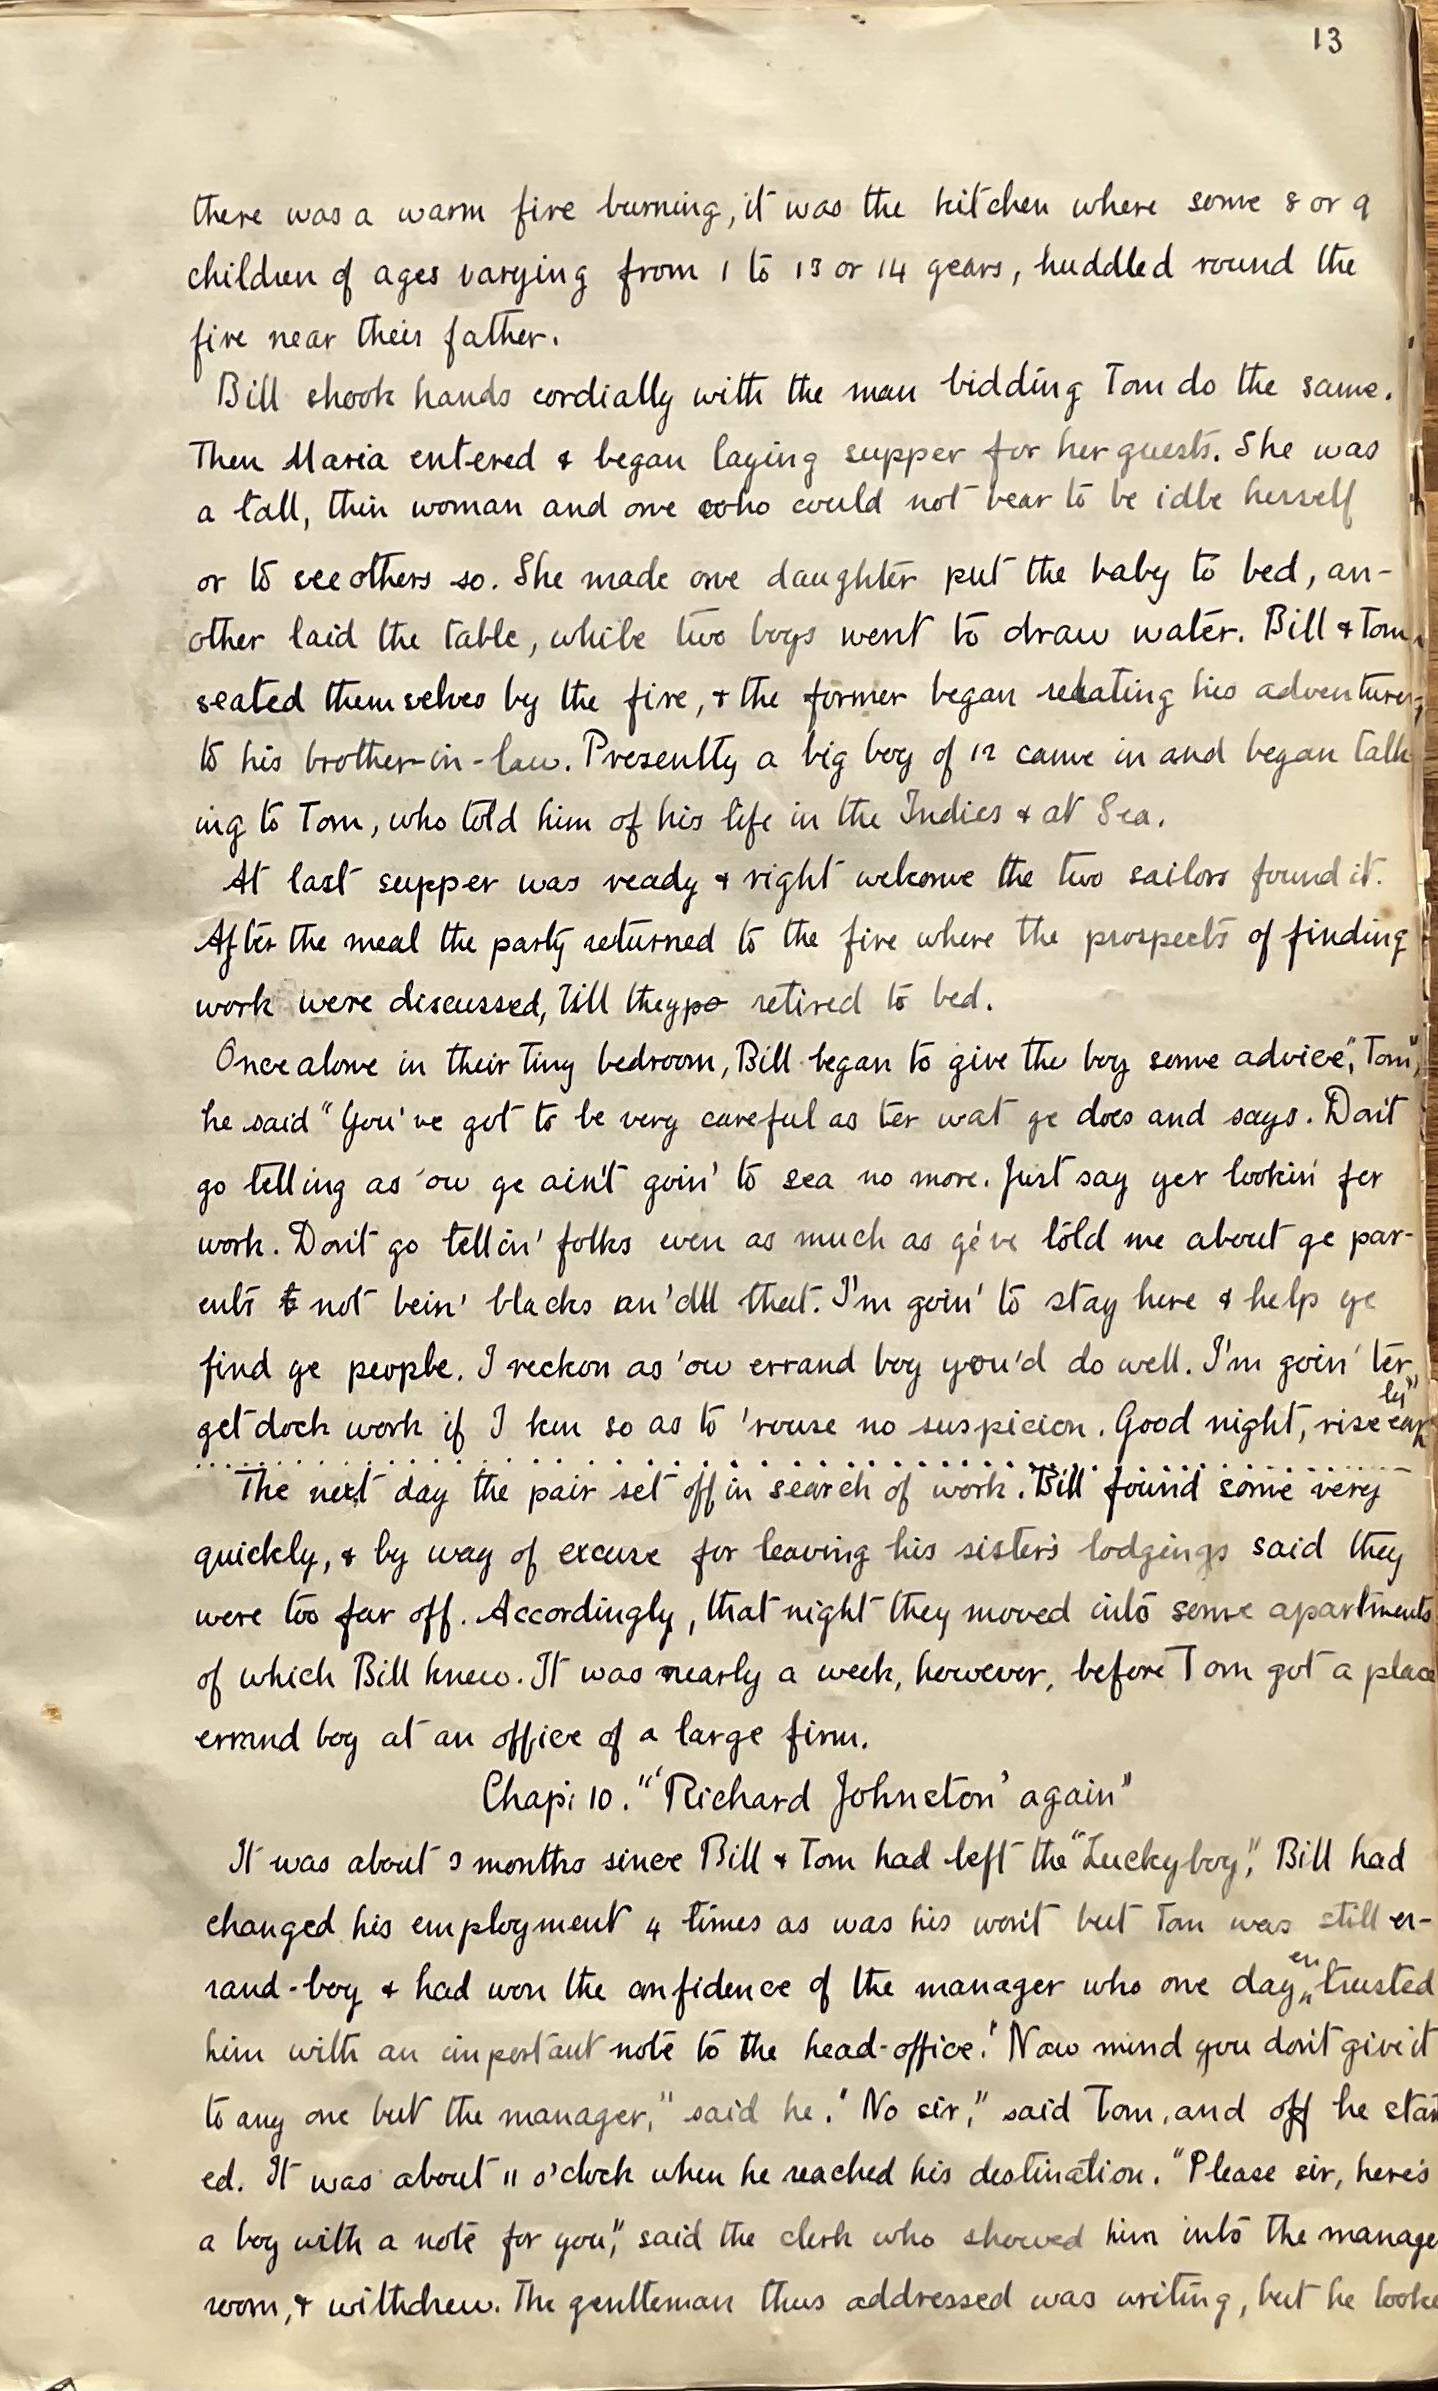 13
there was a warm fire burning, it was the kitchen where some 8 or 9
children of ages varying from 1 to 13 or 14 years, huddled round the
fire near their father.
Bill shook hands cordially with the man bidding Tom do the same.
Then Maria entered & began laying supper for her guests. She was
a tall, thin woman and one who could not bear to be idle herself
or to see others so. She made one daughter put the baby to bed, an-
other laid the table, while two boys went to draw water. Bill & Tom
seated themselves by the fire, & the former began relating his adventures
to his brother-in-law. Presently a big boy of 12 came in and began talk
ing to Tom, who told him of his life in the Indies & at Sea.
At last supper was ready & right welcome the two sailors found it.
After the meal the party returned to the fire where the prospects of finding
work were discussed, till they po retired to bed.
Once alone in their tiny bedroom, Bill began to give the boy some advice", Tom",
he said "You've got to be very careful as ter wat ye does and says. Don't
go telling as 'ow ye ain't goin' to sea no more. Just say yer lookin' fer
work. Don't go tellin' folks even as much as ye've told me about ye par-
ents & not bein' blacks an' all that. I'm goin' to stay here & help ye
find ye people. I reckon as 'ow errand boy you'd do well. I'm goin' ter
get dock work if I ken so as to 'rouse no suspicion. Good night, rise early"
The next day the pair set off in search of work. Bill found some very
quickly, & by way of excuse for leaving his sister's lodgings said they
were too far off. Accordingly, that night they moved into some apartments
of which Bill knew. It was nearly a week, however, before Tom got a place
errand boy at an office of a large firm.
Chap: 10. "'Richard Johnston' again"
It was about 3 months since Bill & Tom had left the "Luckyboy," Bill had
changed his employment 4 times as was his won't but Tom was still er-
rand-boy & had won the confidence of the manager who one day entrusted
him with an important note to the head-office." Now mind you don't give it
to any one but the manager," said he. "No sir," said Tom, and off he start
ed. It was about 11 o'clock when he reached his destination. "Please sir, here's
a boy with a note for you," said the clerk who showed him into the manage
room, & withdrew. The gentleman thus addressed was writing, but he looke